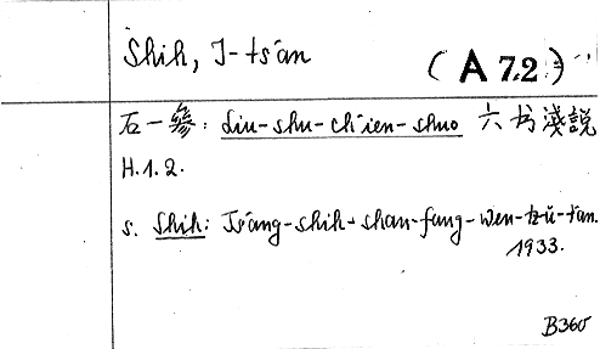 Shih, I-ts'an
(A 7.2)
石一參: Liu-shu-ch'ien-shuo 六书淺説
H.1.2.
s. Shih: Ts'ang-shih-shan-fang-wen-tzŭ-t'an.
1933.
B360